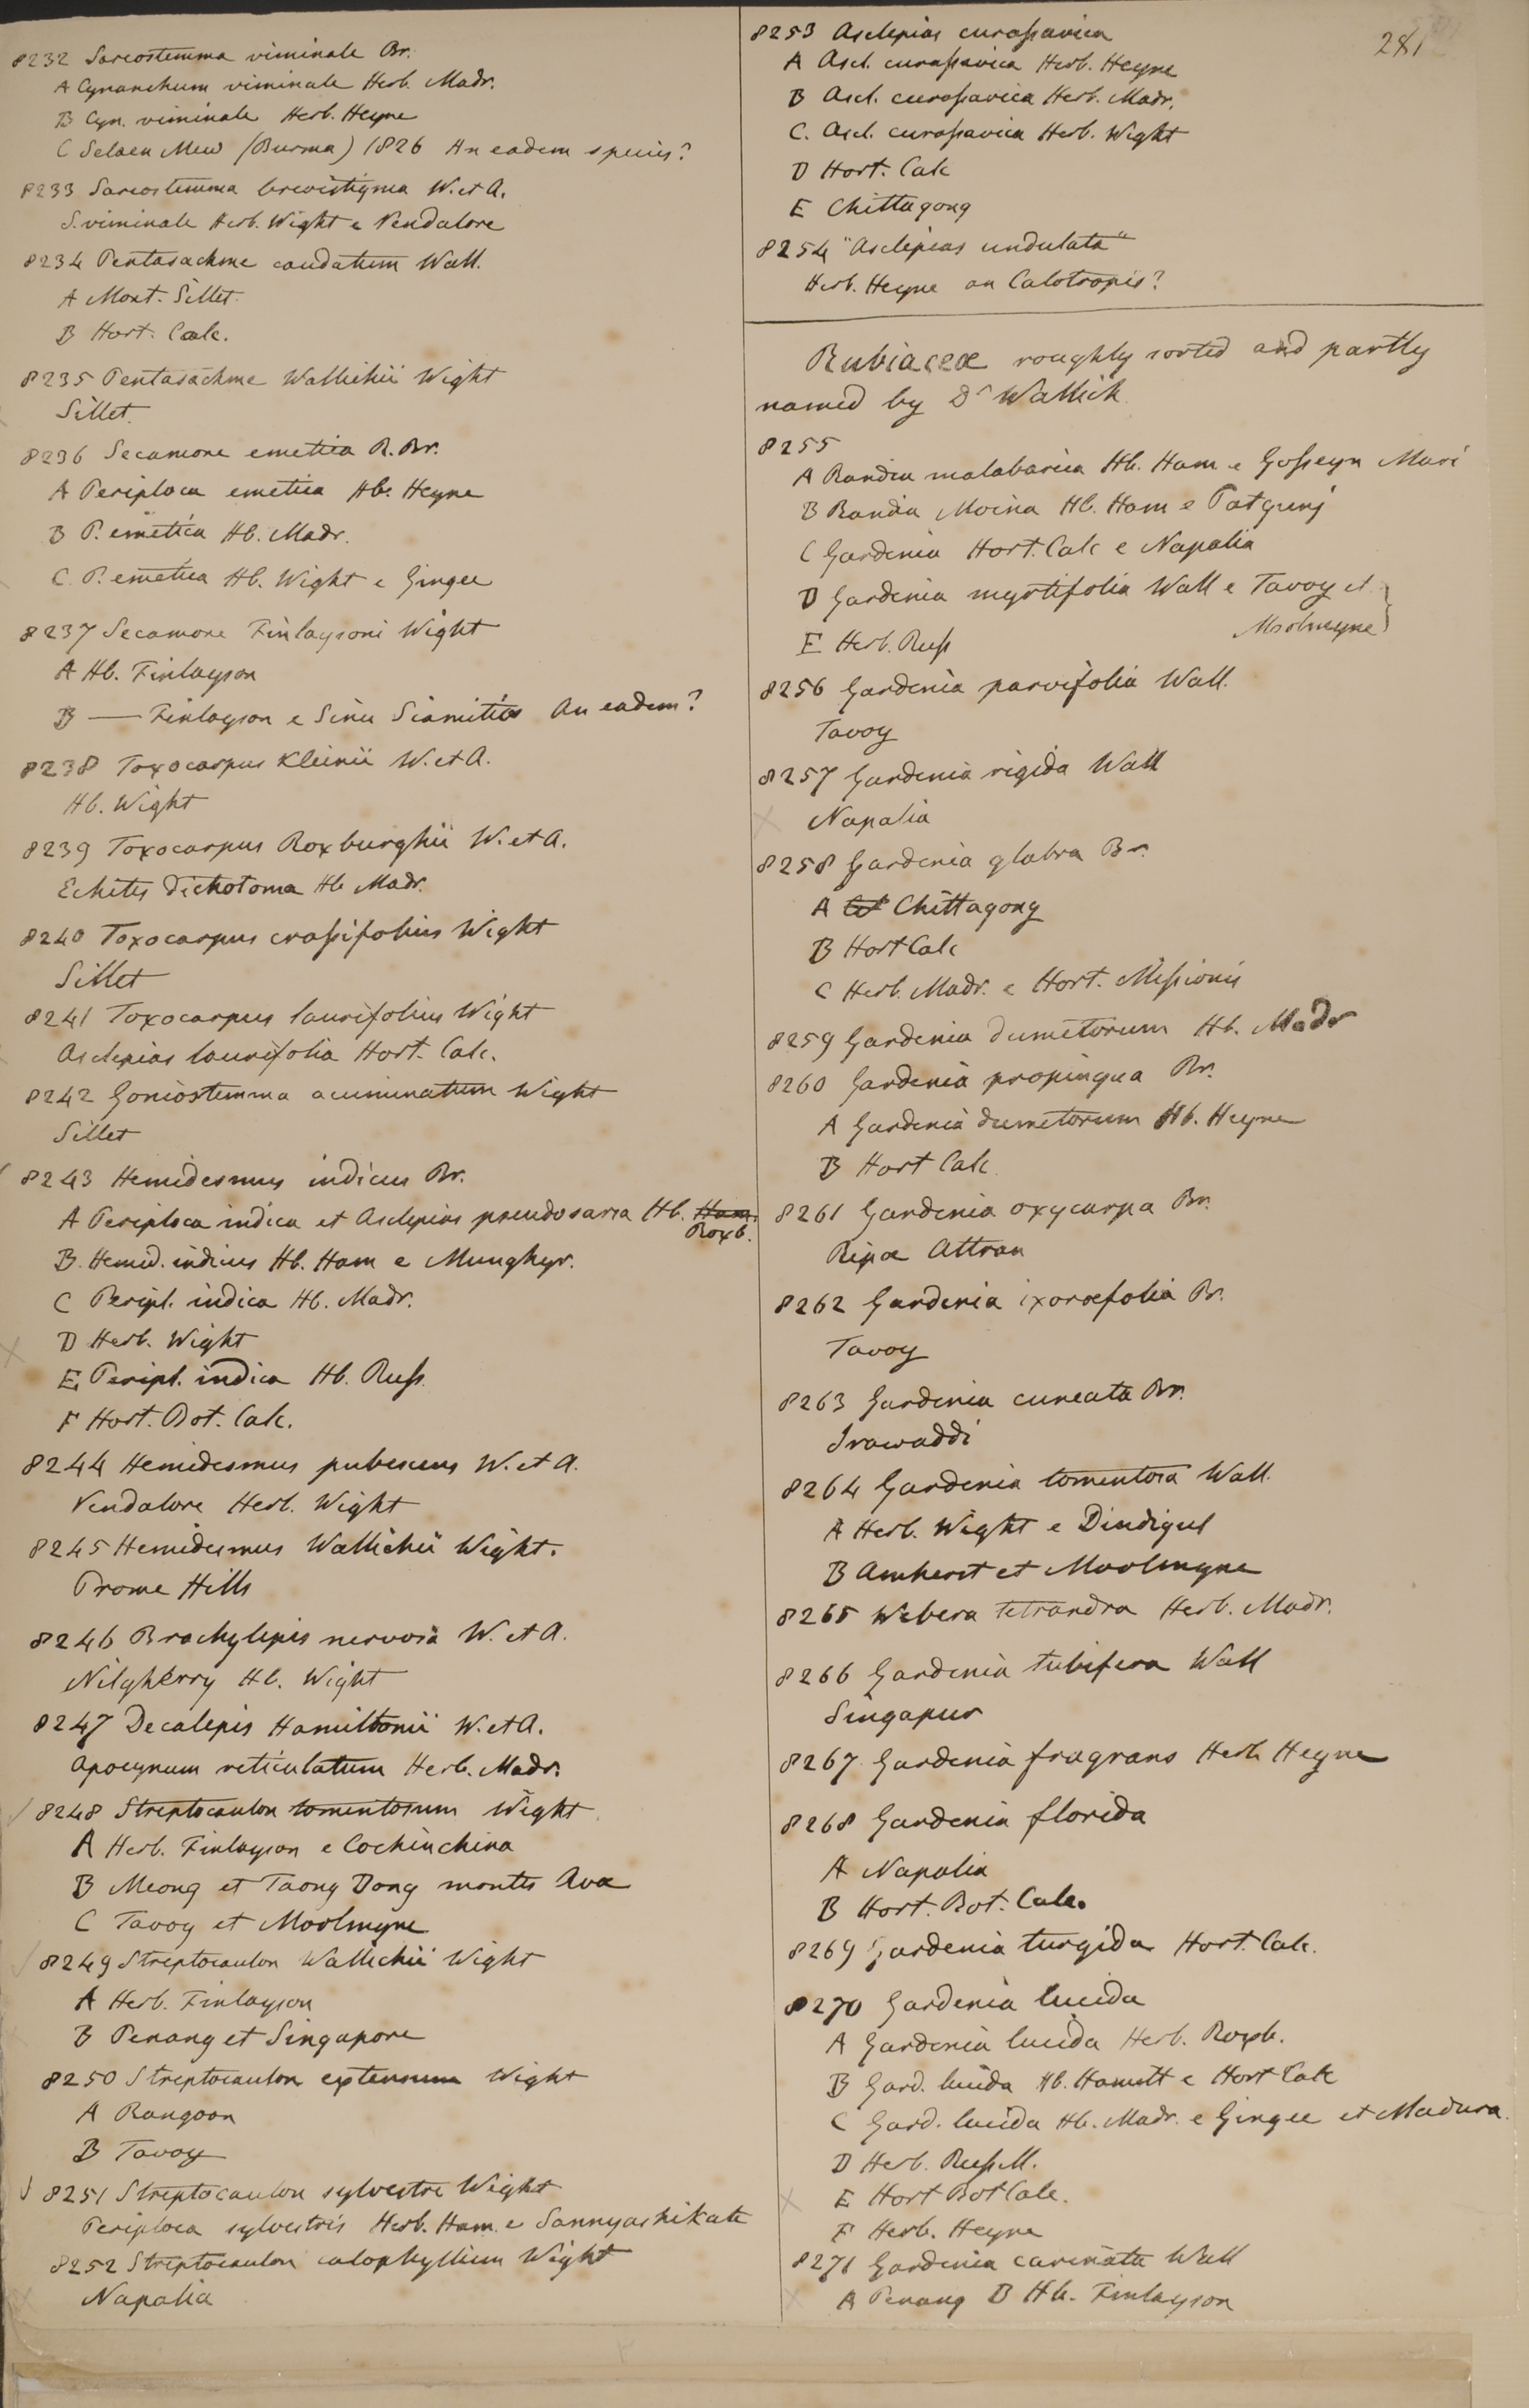 281
8232 Sarcostemma viminale Br.
A Cynanchum viminale Herb. Madr.
B Cyn. viminale Herb. Heyne
C Selaen Mew (Burma) 1826 An eadem species?
8233 Sarcostemma brevistigma W. et A.
S. viminale Herb. Wight e Vendalore
8234 Pentasachme caudatum Wall.
A Mont. Sillet.
B Hort. Calc.
8235 Pentasachme Wallichii Wight
Sillet.
8236 Secamone emetica R. Br.
A Periploca emetica Hb. Heyne
B P. emetica Hb. Madr.
C. P. emetica Hb. Wight e Gingee
8237 Secamone Finlaysoni Wight
A Hb. Finlayson
B — Finlayson e Sinu Siamitico An eadem?
8238 Toxocarpus Kleinii W. et A.
Hb. Wight
8239 Toxocarpus Roxburghii W. et A.
Echites dichotoma Hb Madr.
8240 Toxocarpus crassifolius Wight
Sillet
8241 Toxocarpus laurifolius Wight
Asclepias laurifolia Hort. Calc.
8242 Goniostemma acuminatum Wight
Sillet
8243 Hemidesmus indicus Br.
A Periploca indica et Asclepias pseudosarsa Hb. Ham.
Roxb.
B. Hemid. indicus Hb. Ham e Munghyr.
C Peripl. indica Hb. Madr.
D Herb. Wight
E. Peripl. indica Hb. Russ.
F Hort. Bot. Calc.
8244 Hemidesmus pubescens W. et A.
Vendalore Herb. Wight
8245 Hemidesmus Wallichii Wight.
Prome Hills
8246 Brachylepis nervosa W. et A.
Nilgherry Hb. Wight
8247 Decalepis Hamiltonii W. et A.
Apocynum reticulatum Herb. Madr.
8248 Streptocaulon tomentosum Wight
A Herb. Finlayson e Cochinchina
B Meong et Taong Dong montes Avae
C Tavoy et Moolmyne
8249 Streptocaulon Wallichii Wight
A Herb. Finlayson
B Penang et Singapore
8250 Streptocaulon extensum Wight
A Rangoon
B Tavoy
8251 Streptocaulon sylvestre Wight
Periploca sylvestris Herb. Ham. e Sannyashikata
8252 Streptocaulon calophyllum Wight
Napalia
8253 Asclepias curassavica
A Ascl. curassavica Herb. Heyne
B Ascl. curassavica Herb. Madr.
C. Ascl. curassavica Herb. Wight
D Hort. Calc
E Chittagong
8254 "Asclepias undulata"
Herb. Heyne an Calotropis?
Rubiaceae roughly sorted and partly
named by Dr Wallich.
8255
A Randia malabarica Hb. Ham e Gosseyn Mari
B Randia Moina Hb. Ham e Patgunj
C Gardenia Hort. Calc e Napalia
D Gardenia myrtifolia Wall e Tavoy et
Moolmeyne
E Herb. Russ
8256 Gardenia parvifolia Wall.
Tavoy
8257 Gardenia rigida Wall
Napalia
8258 Gardenia glabra Br.
A Chittagong
B Hort Calc
C Herb. Madr. e Hort. Missionis
8259 Gardenia dumetorum Hb. Madr
8260 Gardenia propinqua Br.
A Gardenia dumetorum Hb. Heyne
B Hort Calc.
8261 Gardenia oxycarpa Br.
Ripa Attran
8262 Gardenia ixoraefolia Br.
Tavoy
8263 Gardenia cuneata Br.
Irawaddi
8264 Gardenia tomentosa Wall.
A Herb. Wight e Dindigul
B Amherst et Moolmyne
8265 Webera tetrandra Herb. Madr.
8266 Gardenia tubifera Wall
Singapur
8267 Gardenia fragrans Herb Heyne
8268 Gardenia florida
A Napalia
B Hort. Bot. Calc.
8269 Gardenia turgida Hort. Calc.
8270 Gardenia lucida
A Gardenia lucida Herb. Roxb.
B Gard. lucida Hb. Hamilt e Hort Calc
C Gard. lucida Hb. Madr. e Gingee et Madura.
D Herb. Russell.
E Hort Bot Calc.
F Herb. Heyne
8271 Gardenia carinata Wall
A Penang B Hb. Finlayson